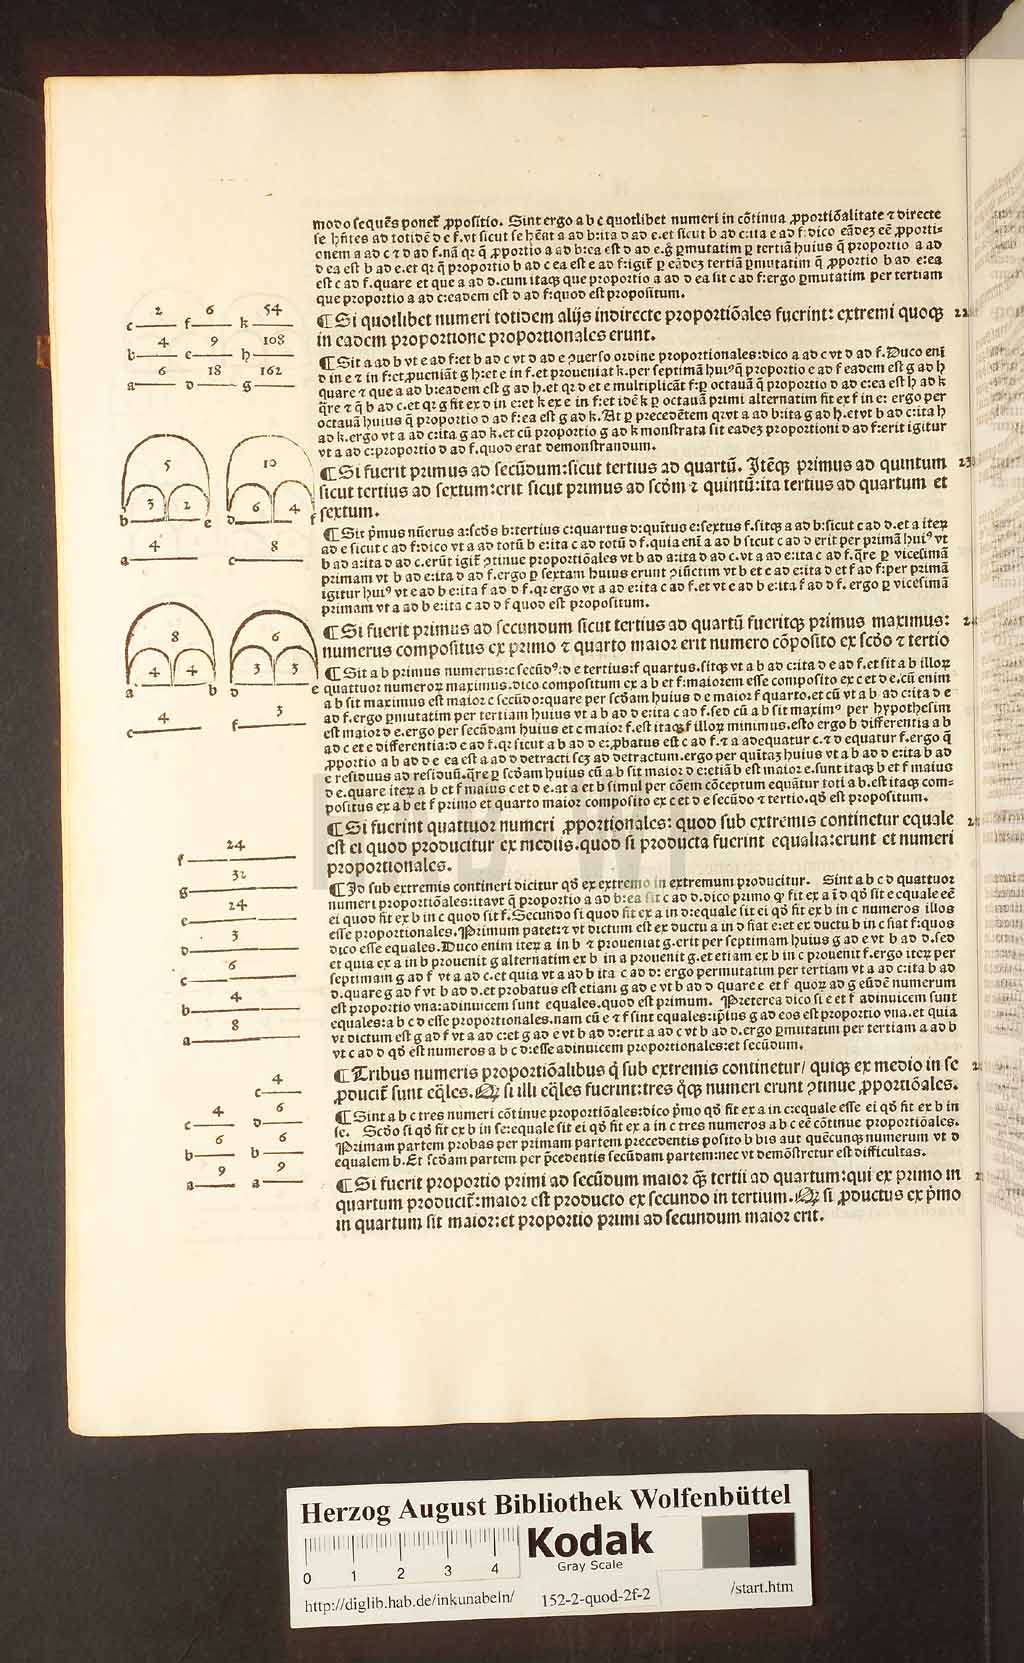 modo sequēs ponet᷑ ꝓpositio. Sint ergo a b c quotlibet numeri in cōtinua ꝓportiōalitate ⁊ directe
se hn̄tes ad totidē d e f. vt sicut se hēat a ad b:ita d ad e.et sicut b ad c:ita e ad f:dico eādeꝫ eē ꝓporti-
onem a ad c ⁊ d ad f.nā qꝛ q̄ ꝓportio a ad b:ea est d ad e.g̊ ꝑmutatim ꝑ tertiā huius q̄ proportio a ad
d ea est b ad e.et qꝛ q̄ proportio b ad c ea est e ad f:igit᷑ ꝑ eādeꝫ tertiā ꝑmutatim q̄ ꝓportio b ad e:ea
est c ad f.quare et que a ad d.cum itaqꝫ que proportio a ad d ea sit c ad f:ergo ꝑmutatim per tertiam
que proportio a ad c:eadem est d ad f:quod est propositum.
¶ Si quotlibet numeri totidem alijs indirecte proportiōales fuerint: extremi quoqꝫ 22
in eadem proportione proportionales erunt.
¶ Sit a ad b vt e ad f:et b ad c vt d ad e ꝯuerso ordine proportionales:dico a ad c vt d ad f. Duco eni᷑
d in e ⁊ in f:et ꝓueniāt g h:et e in f.et proueniat k.per septimā hui⁹ q̄ proportio e ad f eadem est g ad h
quare ⁊ que a ad b:eadem est g ad h.et qꝛ d et e multiplicāt f:ꝑ octauā q̄ proportio d ad e:ea est h ad k
q̄re ⁊ q̄ b ad c.et qꝛ g fit ex d in e:et k ex e in f:et idē k ꝑ octauā primi alternatim fit ex f in e: ergo per
octauā huius q̄ proportio d ad f:ea est g ad k. At ꝑ precedētem qꝛ vt a ad b:ita g ad h.et vt b ad c:ita h
ad k.ergo vt a ad c:ita g ad k.et cū proportio g ad k monstrata sit eadeꝫ proportioni d ad f:erit igitur
vt a ad c:proportio d ad f.quod erat demonstrandum.
¶ Si fuerit primus ad secūdum:sicut tertius ad quartū. Itēqꝫ primus ad quintum 23
sicut tertius ad sextum:erit sicut primus ad scd̄m ⁊ quintū:ita tertius ad quartum et
sextum.
¶ Sit p̄mus nūerus a:scd̄s b:tertius c:quartus d:quītus e:sextus f.sitqꝫ a ad b:sicut c ad d.et a iteꝝ
ad e sicut c ad f:dico vt a ad totū b e:ita c ad totū d f.quia enī a ad b sicut c ad d erit per primā hui⁹ vt
b ad a:ita d ad c.erūt igit᷑ ꝯtinue proportiōales vt b ad a:ita d ad c.vt a ad e:ita c ad f.q̄re ꝑ vicesimā
primam vt b ad e:ita d ad f.ergo ꝑ sextam huius erunt ꝯiūctim vt b et e ad e:ita d et f ad f:per primā
igitur hui⁹ vt e ad b e:ita f ad d f.qꝛ ergo vt a ad e:ita c ad f.et vt e ad b e:ita f ad d f. ergo ꝑ vicesimā
primam vt a ad b e:ita c ad d f quod est propositum.
¶ Si fuerit primus ad secundum sicut tertius ad quartū fueritqꝫ primus maximus: 24
numerus compositus ex primo ⁊ quarto maior erit numero cōposito ex scd̄o ⁊ tertio
¶ Sit a b primus numerus:c secūd⁹:d e tertius:f quartus.sitqꝫ vt a b ad c:ita d e ad f.et sit a b illoꝝ
quattuor numeroꝝ maximus.dico compositum ex a b et f:maiorem esse composito ex c et d e.cū enim
a b sit maximus est maior c secūdo:quare per scd̄am huius d e maior f quarto.et cū vt a b ad c:ita d e
ad f.ergo ꝑmutatim per tertiam huius vt a b ad d e:ita c ad f.sed cū a b sit maxim⁹ per hypothesim
est maior d e.ergo per secūdam huius et c maior f.est itaqꝫ f illoꝝ minimus.esto ergo b differentia a b
ad c et e differentia:d e ad f.qꝛ sicut a b ad d e:ꝓbatus est c ad f.⁊ a adequatur c.⁊ d equatur f.ergo q̄
ꝓportio a b ad d e ea est a ad d detracti scꝫ ad detractum.ergo per quītaꝫ huius vt a b ad d e:ita b ad
e residuus ad residuū.q̄re ꝑ scd̄am huius cū a b sit maior d e:etiā b est maior e.sunt itaqꝫ b et f maius
d e.quare iteꝝ a b et f maius c et d e.at a et b simul per cōem cōceptum equātur toti a b.est itaqꝫ com-
positus ex a b et f primo et quarto maior composito ex c et d e secūdo ⁊ tertio.qd̄ est propositum.
¶ Si fuerint quattuor numeri ꝓportionales: quod sub extremis continetur equale
est ei quod producitur ex mediis.quod si producta fuerint equalia:erunt et numeri
proportionales.
¶ Id sub extremis contineri dicitur qd̄ ex extremo in extremum producitur. Sint a b c d quattuor
numeri proportiōales:itavt q̄ proportio a ad b:ea sit c ad d.dico primo ꝙ fit ex a ī d qd̄ sit e equale eē
ei quod fit ex b in c quod sit f. Secundo si quod fit ex a in d:equale sit ei qd̄ fit ex b in c numeros illos
esse proportionales. Primum patet:⁊ vt dictum est ex ductu a in d fiat e:et ex ductu b in c fiat f:quos
dico esse equales. Duco enim iteꝝ a in b ⁊ proueniat g.erit per septimam huius g ad e vt b ad d.sed
et quia ex a in b prouenit g alternatim ex b in a prouenit g.et etiam ex b in c prouenit f.ergo iteꝝ per
septimam g ad f vt a ad c.et quia vt a ad b ita c ad d: ergo permutatim per tertiam vt a ad c:ita b ad
d.quare g ad f vt b ad d.et probatus est etiam g ad e vt b ad d quare e et f quoꝝ ad g eūdē numerum
est proportio vna:adinuicem sunt equales.quod est primum. Preterea dico si e et f adinuicem sunt
equales:a b c d esse proportionales.nam cū e ⁊ f sint equales:ipsius g ad eos est proportio vna.et quia
vt dictum est g ad f vt a ad c:et g ad e vt b ad d:erit a ad c vt b ad d.ergo ꝑmutatim per tertiam a ad b
vt c ad d qd̄ est numeros a b c d:esse adinuicem proportionales:et secūdum.
¶ Tribus numeris proportiōalibus q̄ sub extremis continetur/ quiqꝫ ex medio in se
ꝓducit᷑ sunt eq̄les. Qꝫ si illi eq̄les fuerint:tres q̊qꝫ numeri erunt ꝯtinue ꝓportiōales.
¶ Sint a b c tres numeri cōtinue proportiōales:dico p̄mo qd̄ fit ex a in c:equale esse ei qd̄ fit ex b in
se. Scd̄o si qd̄ fit ex b in se:equale sit ei qd̄ fit ex a in c tres numeros a b c eē cōtinue proportiōales.
Primam partem probas per primam partem precedentis posito b bis aut quēcunqꝫ numerum vt d
equalem b. Et scd̄am partem per p̄cedentis secūdam partem:nec vt demōstretur est difficultas.
¶ Si fuerit proportio primi ad secūdum maior qꝫ̄ tertii ad quartum:qui ex primo in
quartum producit᷑:maior est producto ex secundo in tertium. Qꝫ si ꝓductus ex p̄mo
in quartum sit maior:et proportio primi ad secundum maior erit.
2 6 54
c f k
4 9 108
b e h
6 18 162
a d g
5 10
3 2 6 4
b e d f
4 8
a c
8 6
4 4 3 3
a b d e
4 3
c f
24
f
32
g
24
e
3
d
6
c
4
b
8
a
4
e
4 6
c d
6 6
b b
9 9
a a
Herzog August Bibliothek Wolfenbüttel
Kodak
Gray Scale
0 1 2 3 4
http://diglib.hab.de/inkunabeln/ 152-2-quod-2f-2 /start.htm